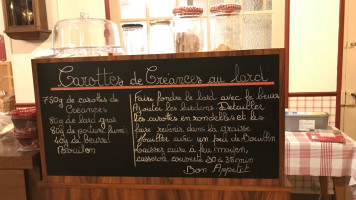 Carottes de Créances au lard
750g de carottes de
Créances
80g de lard gras
80g de poitrine fumé
40g de beurre
Bouillon
Faire fondre le lard avec le beurre
Ajouter les lardons Détailler
les carottes en rondelles et les
faire revenir dans la graisse
Mouiller avec un peu de Bouillon
laisser cuire à feu moyen,
casserole couverte 30 à 35 min
Bon Appétit